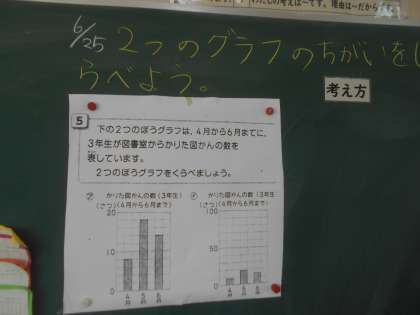 わたしの考えは〜です。理由は〜だからです。
6/25 2つのグラフのちがいをし
らべよう。
考え方
5
下の2つのぼうグラフは、4月から6月までに、
3年生が図書室からかりた図かんの数を
表しています。
2つのぼうグラフをくらべましょう。
㋐ かりた図かんの数(3年生)
(さつ)(4月から6月まで)
20
10
0
4月 5月 6月
かりた図かんの数(3年生)
(さつ)(4月から6月まで)
100
50
0
4月 5月 6月